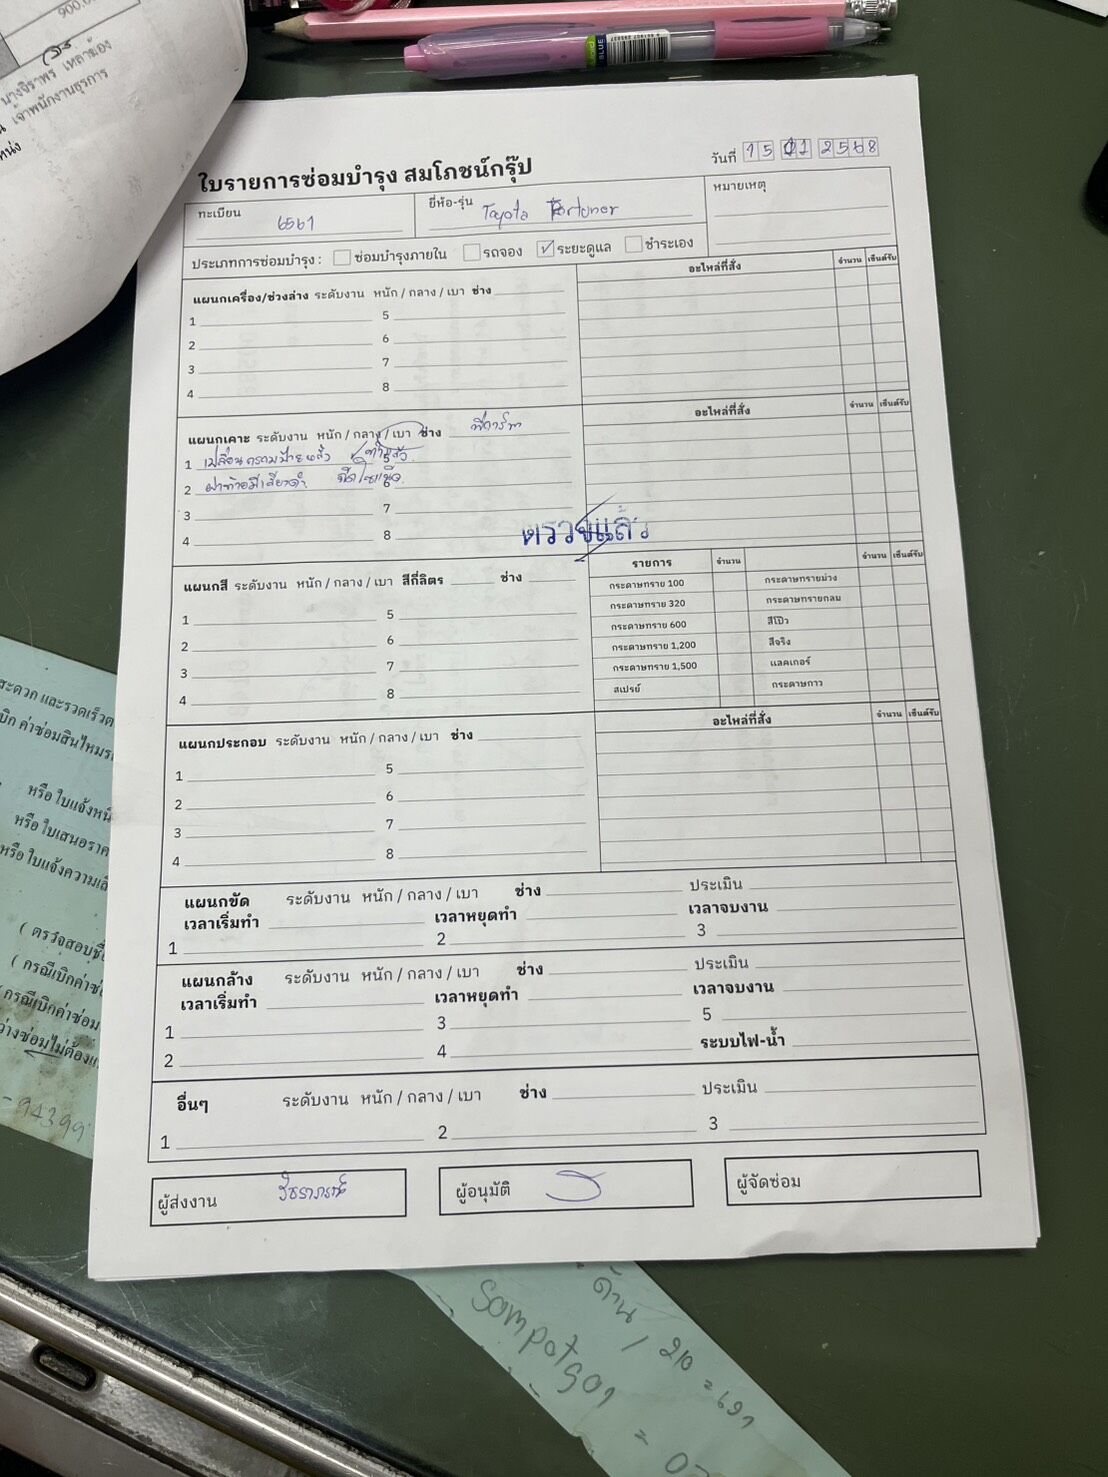 900.
นางจิราพร เหลาฆ้อง
เจ้าพนักงานธุรการ
BLUE
ใบรายการซ่อมบำรุง สมโภชน์กรุ๊ป
วันที่ 15 2568
ทะเบียน 6561
ยี่ห้อ-รุ่น Toyota Fortuner
หมายเหตุ
ประเภทการซ่อมบำรุง : ซ่อมบำรุงภายใน รถจอง ✓ ระยะดูแล ชำระเอง
แผนกเครื่อง/ช่วงล่าง ระดับงาน หนัก / กลาง / เบา ช่าง
อะไหล่ที่สั่ง จำนวน เซ็นต์รับ
1 5
2 6
3 7
4 8
แผนกเคาะ ระดับงาน หนัก / กลาง / เบา ช่าง
อะไหล่ที่สั่ง จำนวน เซ็นต์รับ
1
2 ฝาท้ายมีเสียงดัง
3 7
4 8
ตรวจแล้ว
แผนกสี ระดับงาน หนัก / กลาง / เบา สีกี่ลิตร ช่าง
รายการ จำนวน จำนวน เซ็นต์รับ
กระดาษทราย 100 กระดาษทรายม่วง
กระดาษทราย 320 กระดาษทรายกลม
กระดาษทราย 600 สีโป๊ว
กระดาษทราย 1,200 สีจริง
กระดาษทราย 1,500 แลคเกอร์
สเปรย์ กระดาษกาว
1 5
2 6
3 7
4 8
แผนกประกอบ ระดับงาน หนัก / กลาง / เบา ช่าง
อะไหล่ที่สั่ง จำนวน เซ็นต์รับ
1 5
2 6
3 7
4 8
แผนกขัด ระดับงาน หนัก / กลาง / เบา ช่าง ประเมิน
เวลาเริ่มทำ เวลาหยุดทำ เวลาจบงาน
1 2 3
แผนกล้าง ระดับงาน หนัก / กลาง / เบา ช่าง ประเมิน
เวลาเริ่มทำ เวลาหยุดทำ เวลาจบงาน
1 3 5
2 4 ระบบไฟ-น้ำ
อื่นๆ ระดับงาน หนัก / กลาง / เบา ช่าง ประเมิน
1 2 3
ผู้ส่งงาน
ผู้อนุมัติ
ผู้จัดซ่อม
สะดวก และรวดเร็ว
เบิก ค่าซ่อมสินไหม
หรือ ใบแจ้งหนี้
หรือ ใบเสนอราค
หรือ ใบแจ้งความ
( ตรวจสอบชื่อ
( กรณีเบิกค่าซ่อ
(กรณีเบิกค่าซ่อม
ว่างซ่อมไม่ต้อง
-94399
ด้าน / 210 = 691